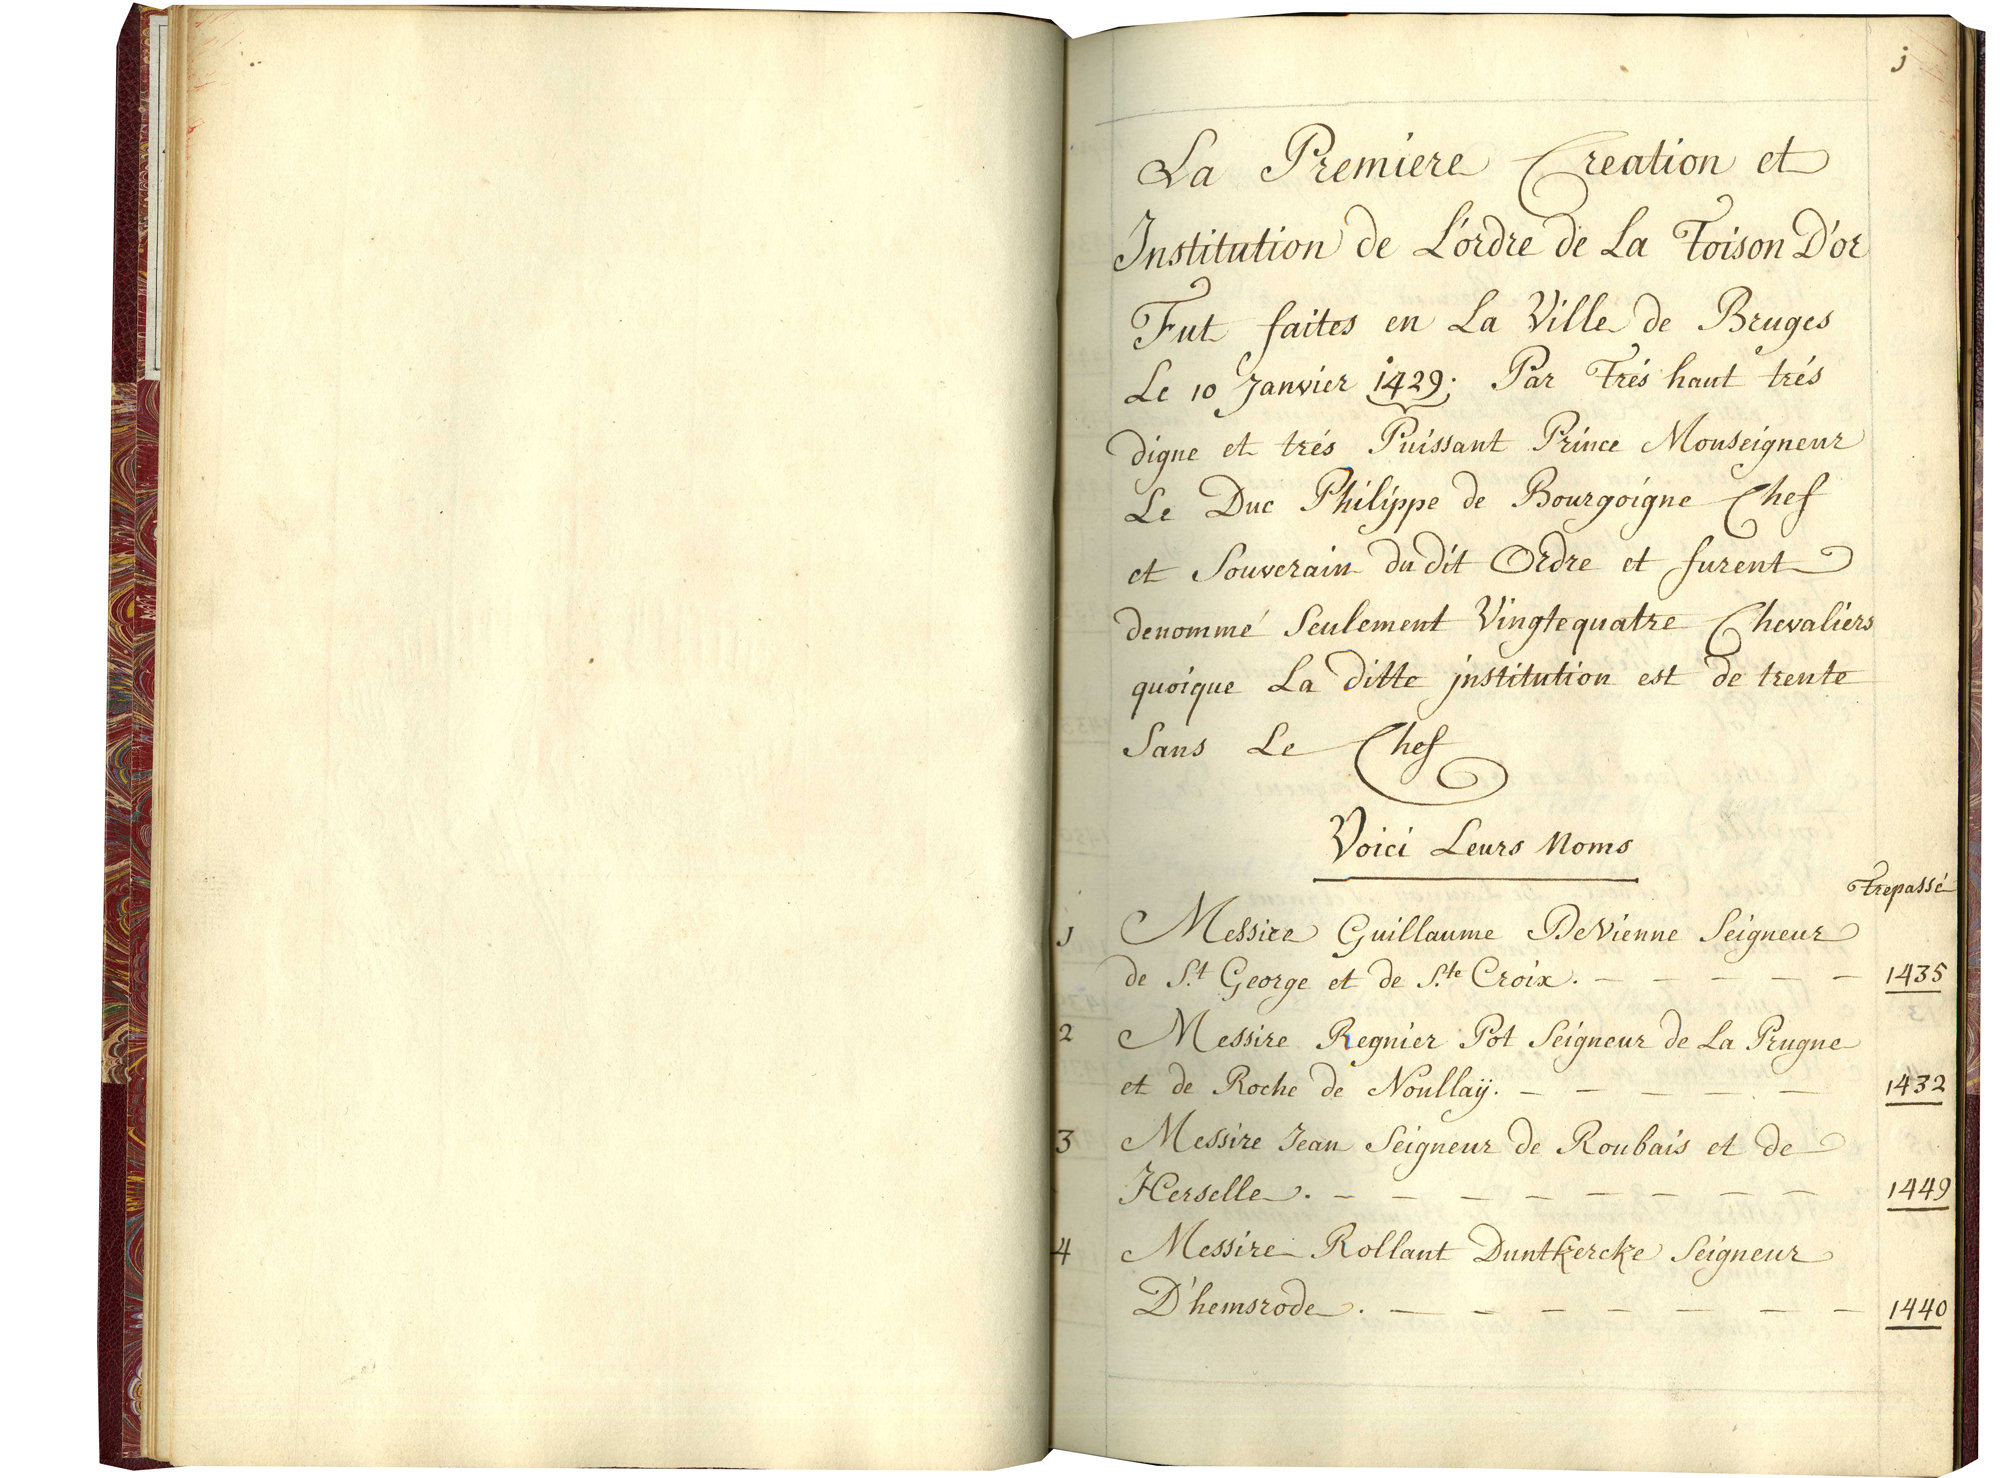 j
La Premiere Creation et
Institution de L'ordre de La Toison D'or
Fut faites en La Ville de Bruges
Le 10 Janvier 1429. Par Trés haut trés
digne et trés Puissant Prince Monseigneur
Le Duc Philippe de Bourgoigne Chef
et Souverain du dit Ordre et furent
denommé Seulement Vingtequatre Chevaliers
quoique La ditte institution est de trente
Sans Le Chef
Voici Leurs Noms
Trepassé
1 Messire Guillaume De Vienne Seigneur
de S.t George et de S.te Croix. — — — — — 1435
2 Messire Regnier Pot Seigneur de La Prugne
et de Roche de Noullaÿ. — — — — — 1432
3 Messire Jean Seigneur de Roubais et de
Herselle. — — — — — — — — 1449
4 Messire Rollant Duntkercke Seigneur
D'hemsrode. — — — — — — — 1440